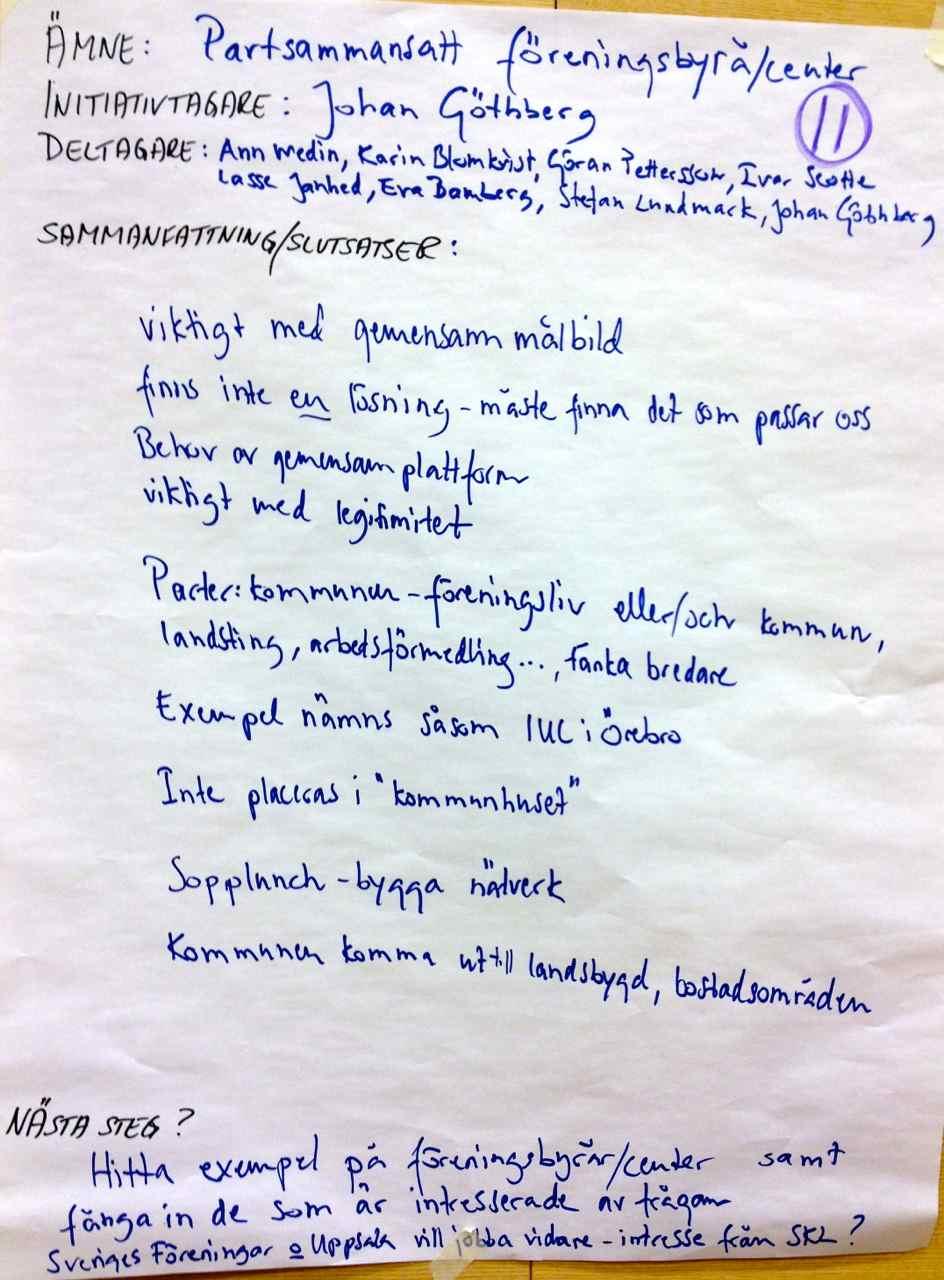 ÄMNE: Partsammansatt föreningsbyrå/center
INITIATIVTAGARE: Johan Göthberg
11
DELTAGARE: Ann Wedin, Karin Blomkvist, Göran Pettersson, Ivar Scotte
Lasse Janhed, Eva Bamberg, Stefan Lundmack, Johan Göthberg
SAMMANFATTNING/SLUTSATSER:
viktigt med gemensam målbild
finns inte en lösning - måste finna det som passar oss
Behov av gemensam plattform
viktigt med legitimitet
Parter: kommunen - föreningsliv eller/och kommun,
landsting, arbetsförmedling..., tänka bredare
Exempel nämns såsom IUC i Örebro
Inte placeras i "kommunhuset"
Sopplunch - bygga nätverk
Kommunen komma ut till landsbygd, bostadsområden
NÄSTA STEG?
Hitta exempel på föreningsbyråer/center samt
fånga in de som är intresserade av frågan
Sveriges Föreningar o Uppsala vill jobba vidare - intresse från SKL?